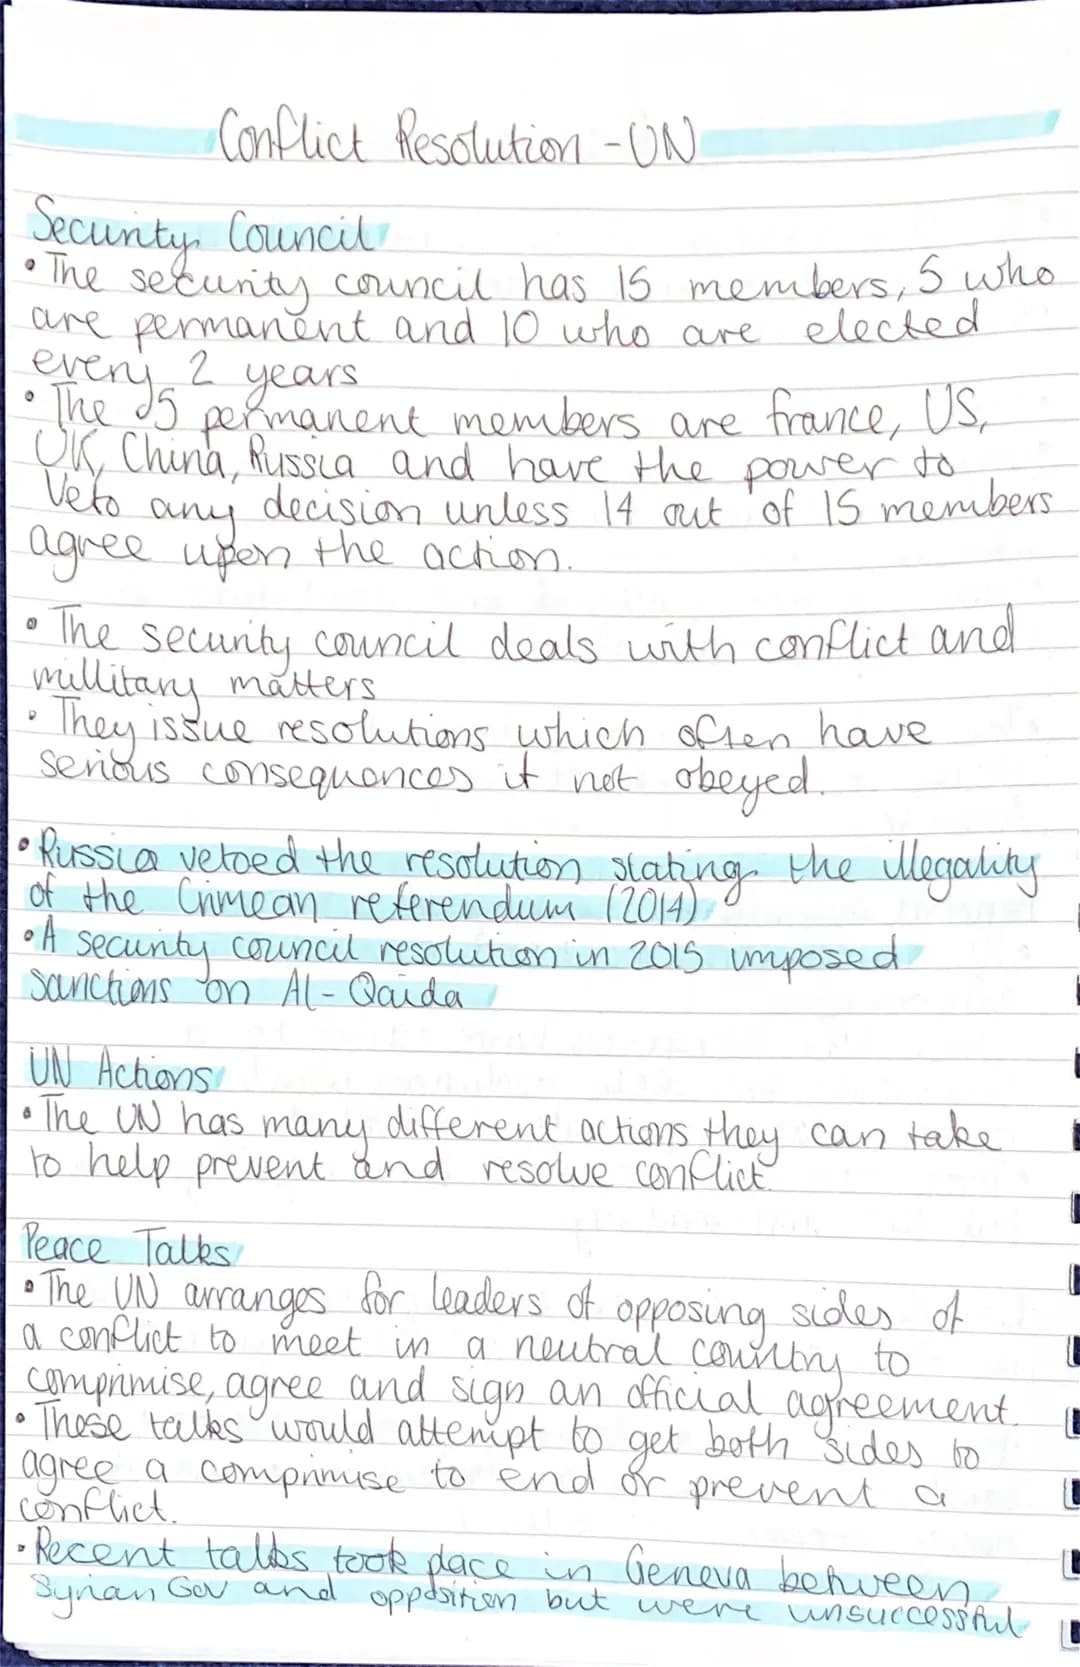 Conflict Resolution - UN
Security Council
• The security council has 15 members, 5 who
are permanent and 10 who are elected
every 2 years
• The 5 permanent members are france, US,
UK, China, Russia and have the power to
Veto any decision unless 14 out of 15 members
agree upon the action.
• The security council deals with conflict and
millitary matters
• They issue resolutions which often have
serious consequences if not obeyed.
• Russia vetoed the resolution stating the illegality
of the Crimean referendum (2014)
• A security council resolution in 2015 imposed
sanctions on Al-Qaida
UN Actions
• The UN has many different actions they can take
to help prevent and resolve conflict.
Peace Talks
• The UN arranges for leaders of opposing sides of
a conflict to meet in a neutral country to
comprimise, agree and sign an official agreement.
• These talks would attempt to get both sides to
agree a comprimise to end or prevent a
conflict.
• Recent talks took place in Geneva between
Syrian Gov and opposition but were unsuccessful